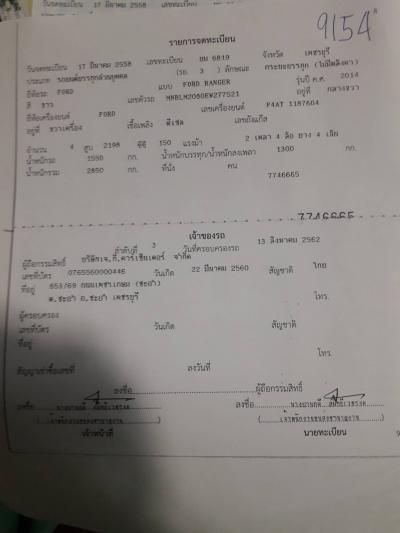 วันจดทะเบียน 17 มีนาคม 2558 เลขทะเบียน
9154
รายการจดทะเบียน
วันจดทะเบียน 17 มีนาคม 2558 เลขทะเบียน ยม 6819 จังหวัด เพชรบุรี
ประเภท รถยนต์บรรทุกส่วนบุคคล (รย. 3 ) ลักษณะ กระบะบรรทุก (ไม่มีหลังคา)
ยี่ห้อรถ FORD แบบ FORD RANGER รุ่นปี ค.ศ. 2014
สี ขาว เลขตัวรถ MNBLM2080EW277521 อยู่ที่ กลางขวา
ยี่ห้อเครื่องยนต์ FORD เลขเครื่องยนต์ P4AT 1187604
อยู่ที่ ขวาเครื่อง เชื้อเพลิง ดีเซล เลขถังแก๊ส
จำนวน 4 สูบ 2198 ซีซี 150 แรงม้า 2 เพลา 4 ล้อ ยาง 4 เส้น
น้ำหนักรถ 1550 กก. น้ำหนักบรรทุก/น้ำหนักลงเพลา 1300 กก.
น้ำหนักรวม 2850 กก. ที่นั่ง คน
7746665
7746665
เจ้าของรถ
ลำดับที่ 3 วันที่ครอบครองรถ 13 สิงหาคม 2562
ผู้ถือกรรมสิทธิ์ บริษัทเจ.กี.คาร์เซ็นเตอร์ จำกัด
เลขที่บัตร 0765560000446 วันเกิด 22 มีนาคม 2560 สัญชาติ ไทย
ที่อยู่ 653/69 ถนนเพชรเกษม (ชะอำ)
ต.ชะอำ อ.ชะอำ เพชรบุรี โทร.
ผู้ครอบครอง
เลขที่บัตร วันเกิด สัญชาติ
ที่อยู่
โทร.
สัญญาเช่าซื้อเลขที่ ลงวันที่
ลงชื่อ ผู้ถือกรรมสิทธิ์
ลงชื่อ ลงชื่อ
(เจ้าพนักงานขนส่งชำนาญงาน) (เจ้าพนักงานขนส่งชำนาญงาน)
เจ้าหน้าที่ นายทะเบียน